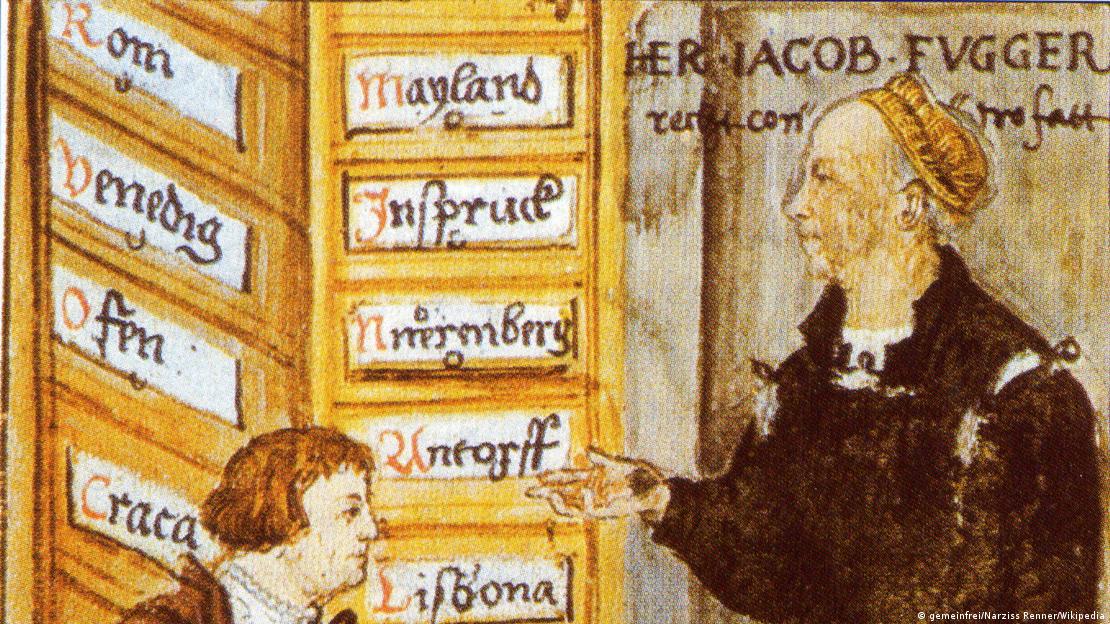 Rom
Venedig
Ofen
Craca
Mayland
Inspruck
Nuermberg
Antorff
Lisbona
HER · IACOB · FVGGER
© gemeinfrei/Narziss Renner/Wikipedia